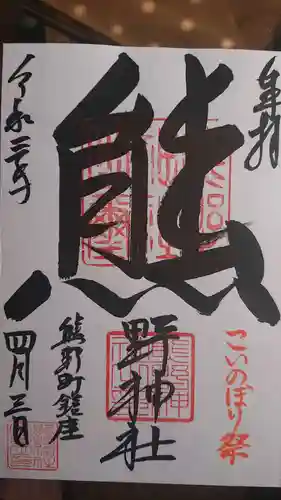 奉拝
熊
野神社
こいのぼり祭
熊野町鎮座
令和三年
四月三日